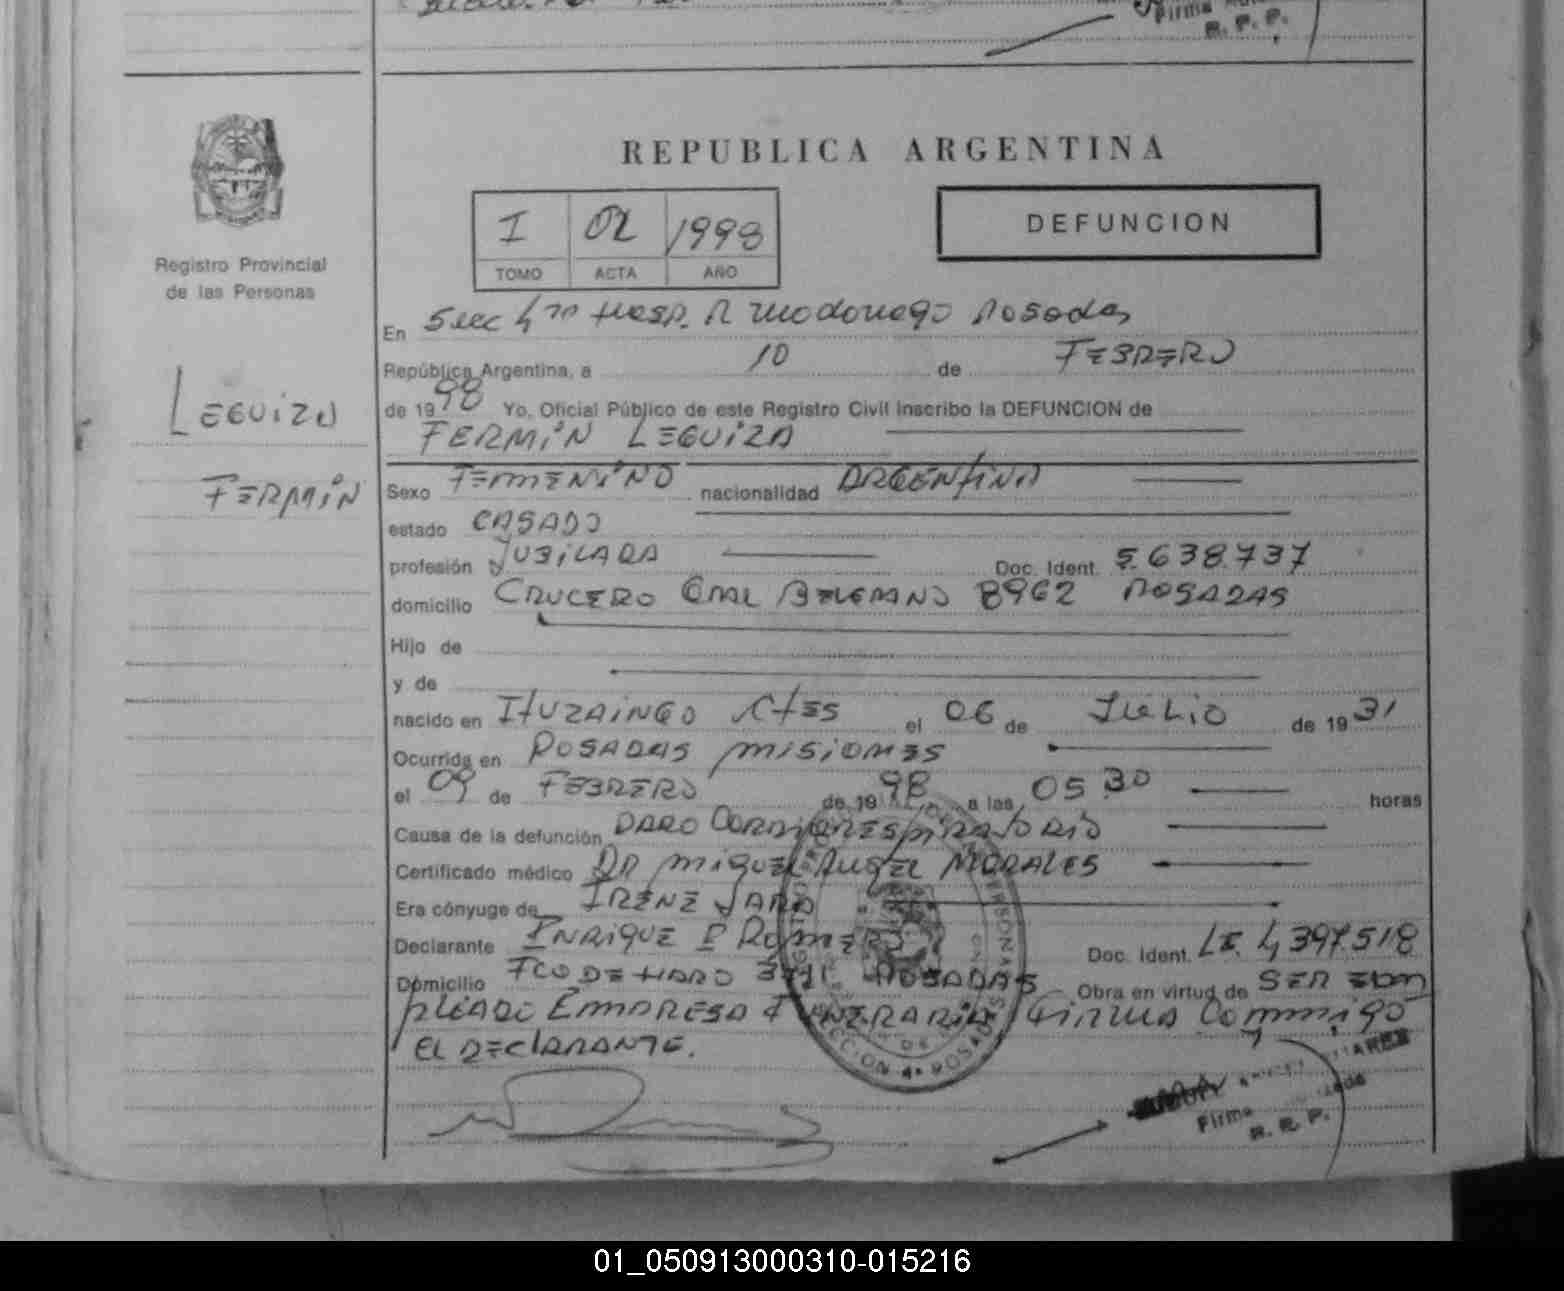 Firma
R. P. P.
REPUBLICA ARGENTINA
I 02 1998
TOMO ACTA AÑO
DEFUNCION
Registro Provincial
de las Personas
LEGUIZA
FERMIN
En Secc 4ta Hosp. R Madariaga Posadas
República Argentina, a 10 de FEBRERO
de 1998 Yo, Oficial Público de este Registro Civil inscribo la DEFUNCION de
FERMIN LEGUIZA
Sexo FEMENINO nacionalidad ARGENTINA
estado CASADO
profesión JUBILADA Doc. Ident. 5.638.737
domicilio CRUCERO GRAL BELGRANO 8962 POSADAS
Hijo de
y de
nacido en ITUZAINGO CTES el 06 de JULIO de 1931
Ocurrida en POSADAS MISIONES
el 09 de FEBRERO de 1998 a las 05 30 horas
Causa de la defunción PARO CARDIORESPIRATORIO
Certificado médico DR MIGUEL ANGEL MORALES
Era cónyuge de IRENE JARA
Declarante ENRIQUE P ROMERO Doc. Ident. LE. 4,397.518
Domicilio FCO DE HARO POSADAS Obra en virtud de SER EM
PLEADO EMPRESA FUNERARIA FIRMA CONMIGO
EL DECLARANTE.
SECCION 4ª POSADAS
Firma
R. P. P.
01_050913000310-015216